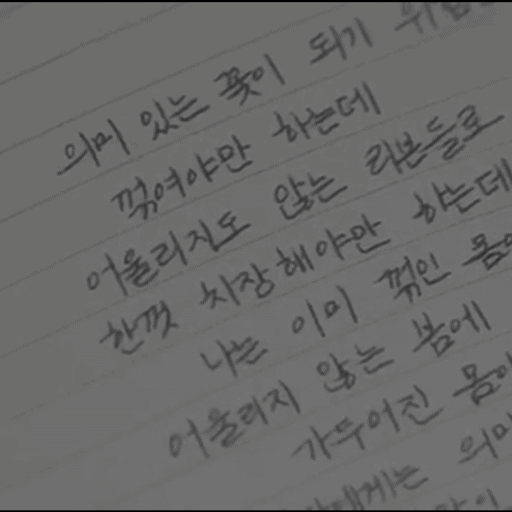 의미 있는 꽃이 되기 위
꺾여야만 하는데
어울리지도 않는 리본들로
한껏 치장해야만 하는데
나는 이미 꺾인 몸
어울리지 않는 봄에
가두어진 몸
에게는 의미